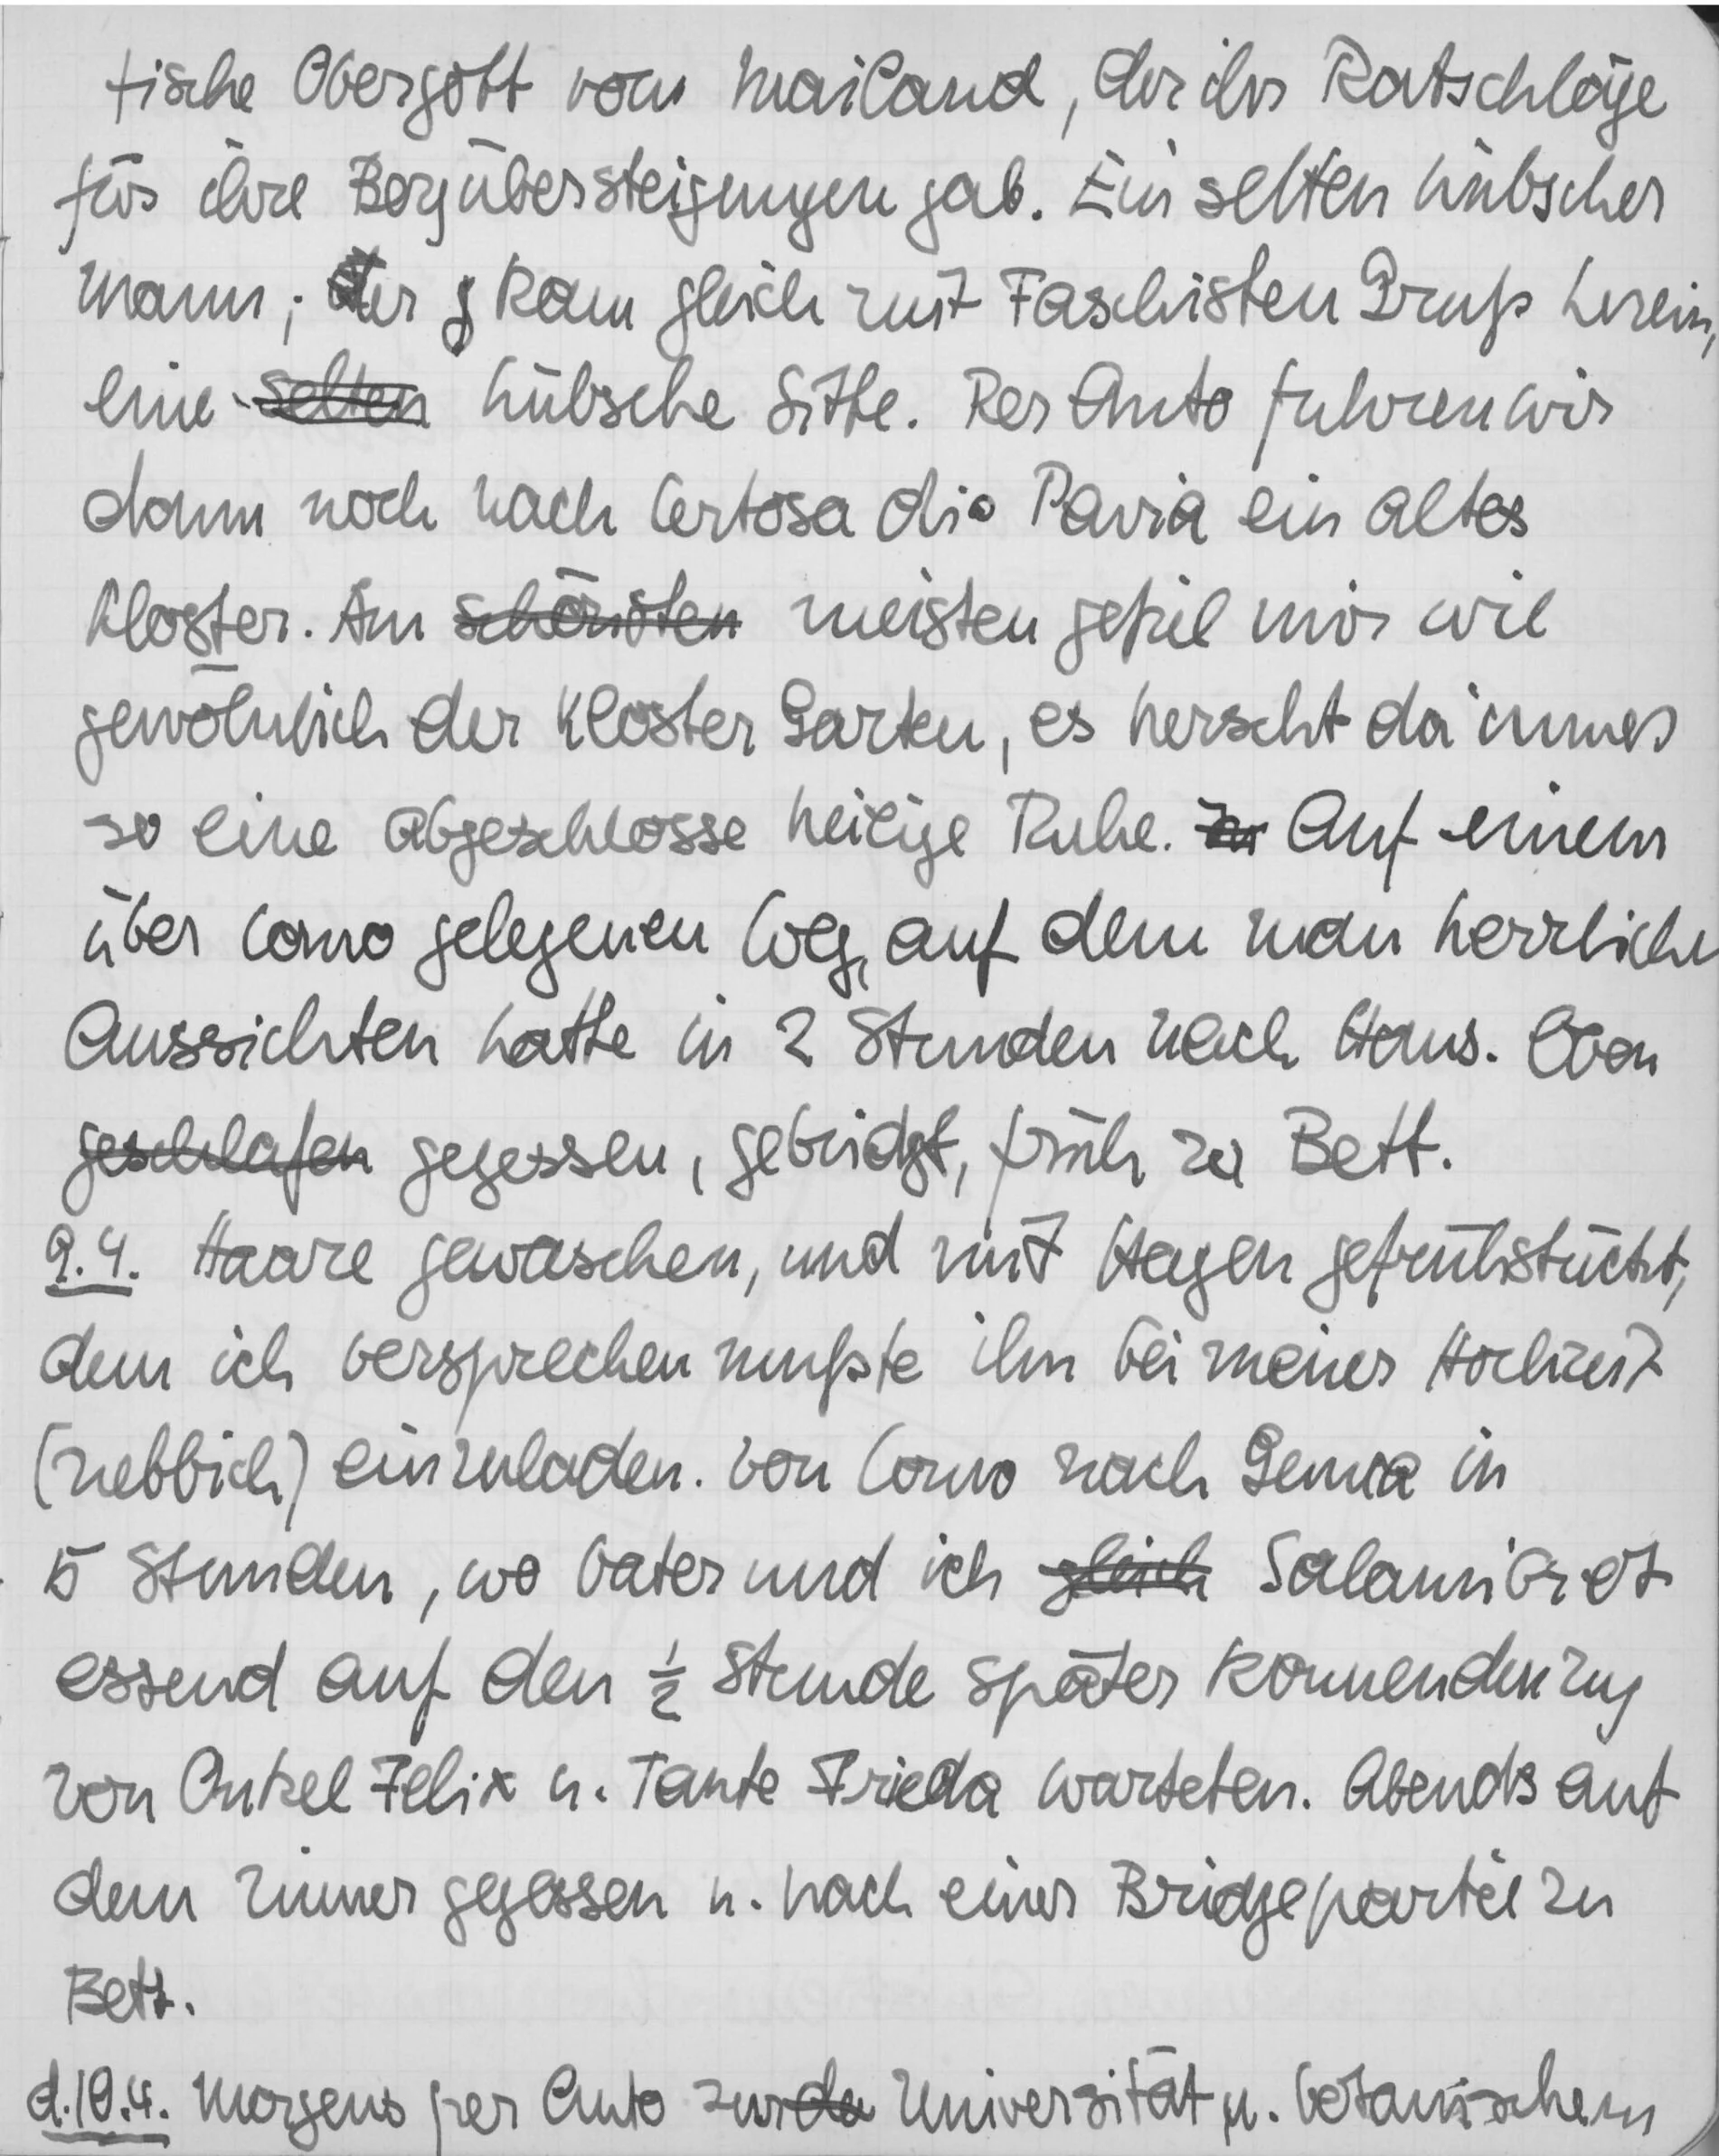 tische Obergott von Mailand, der ihr Ratschläge
für ihre Bergübersteigungen gab. Ein selten hübscher
Mann; der g kam gleich mit Faschisten Gruß herein,
eine selten hübsche Sitte. Per Auto fuhren wir
dann noch nach Certosa di Pavia ein altes
Kloster. Am schönsten meisten gefiel mir wie
gewöhnlich der Kloster Garten, es herscht da immer
so eine abgeschlosse heilige Ruhe. Auf einem
über Como gelegenen Weg, auf dem man herrliche
Aussichten hatte in 2 Stunden nach Haus. Oben
geschlafen gegessen, gebridgt, früh zu Bett.
9.4. Haare gewaschen, und mit Hagen gefrühstückt,
dem ich versprechen mußte ihn bei meiner Hochzeit
(nebbich) einzuladen. Von Como nach Genua in
5 Stunden, wo Vater und ich gleich Salamibrot
essend auf den ½ Stunde später kommenden Zug
von Onkel Felix u. Tante Frieda warteten. Abends auf
dem Zimmer gegessen u. nach einer Bridgepartie zu
Bett.
d.10.4. Morgens per Auto zur Universität u. botanischem